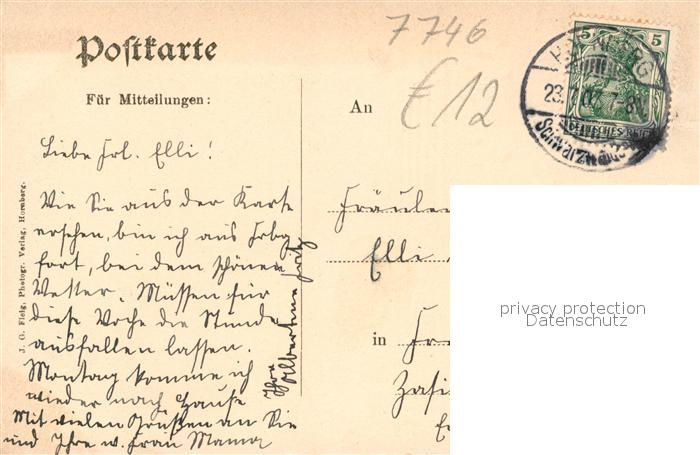 7746
€12
Postkarte
Für Mitteilungen:
An
5 5
HORNBERG
23. 07. 7-8V.
DEUTSCHES REICH
Schwarzwaldb
Liebe Frl. Elli!
Wie Sie aus der Karte
ersehen, bin ich aus Frbg
fort, bei dem schönen
Wetter. Müssen für
diese Woche die Stunde
ausfallen lassen.
Montag komme ich
wieder nach Hause
Mit vielen Grüßen an Sie
und Ihre w. Frau Mama
Ihre
J. G. Fleig, Photogr. Verlag, Hornberg.
Fräulei
Elli
in Fr
Zasi
privacy protection
Datenschutz